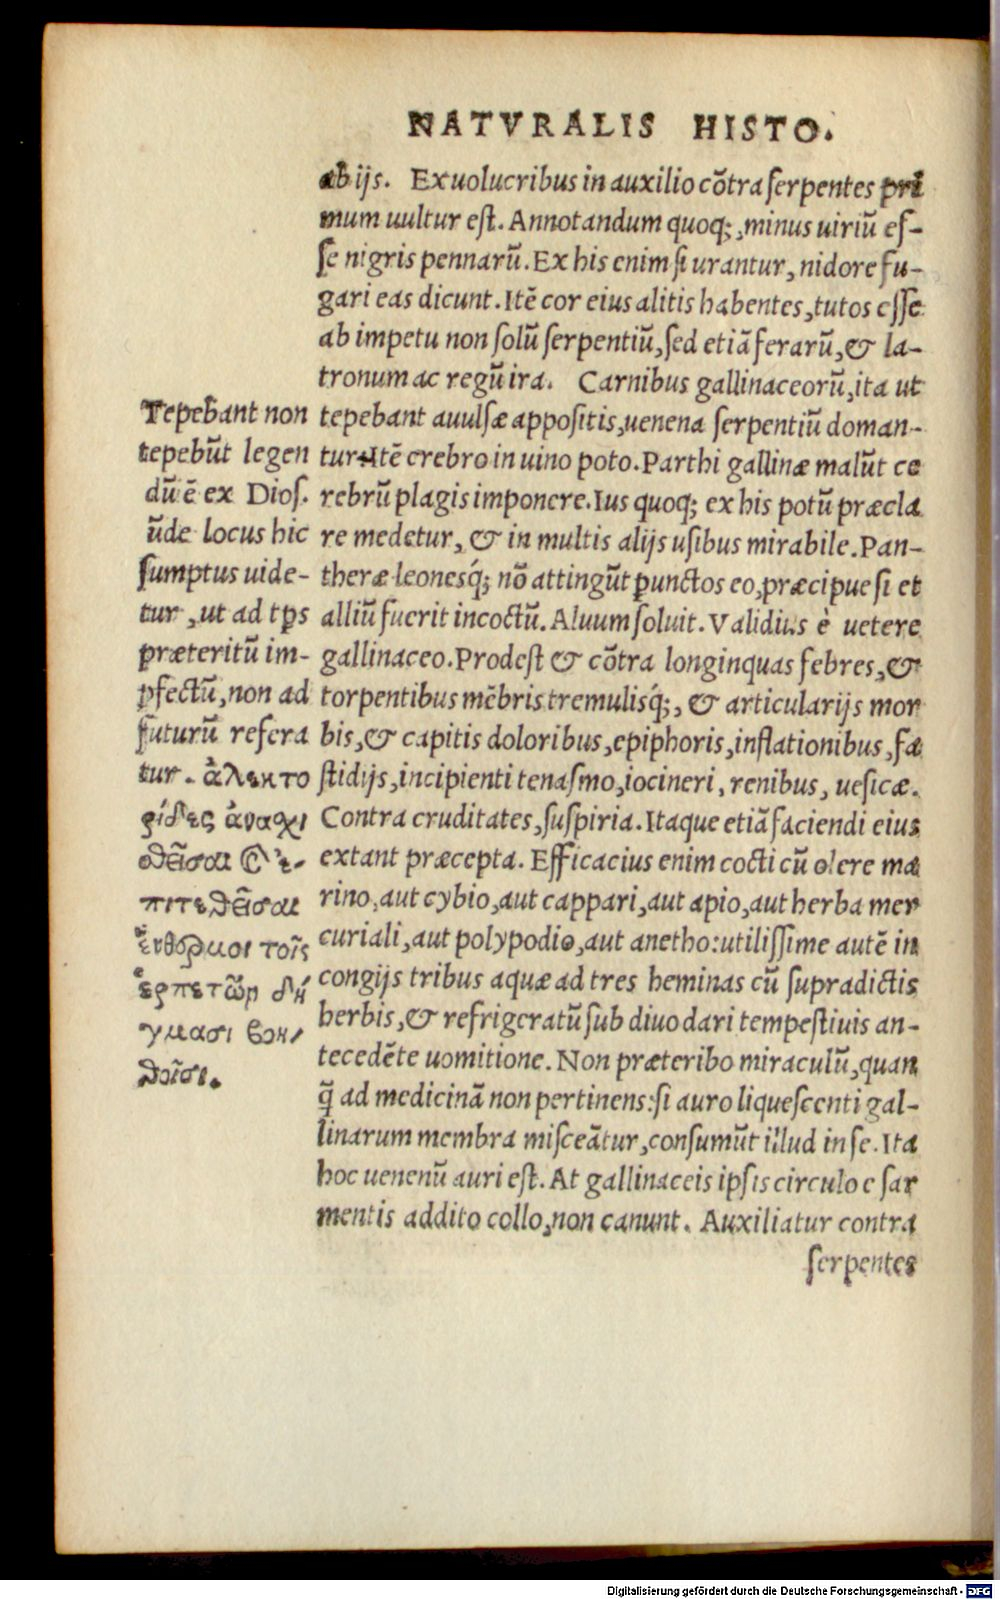 NATVRALIS HISTO.
ab ijs. Ex uolucribus in auxilio cõtra serpentes pri
mum uultur est. Annotandum quoq;, minus uiriũ es-
se nigris pennarũ. Ex his enim si urantur, nidore fu-
gari eas dicunt. Itẽ cor eius alitis habentes, tutos esse
ab impetu non solũ serpentiũ, sed etiã ferarũ, & la-
tronum ac regũ ira. Carnibus gallinaceorũ, ita ut
tepebant auulsæ appositis, uenena serpentiũ doman-
tur. Itẽ crebro in uino poto. Parthi gallinæ malũt ce
rebrũ plagis imponere. Ius quoq; ex his potũ præcla
re medetur, & in multis alijs usibus mirabile. Pan-
theræ leonesq́; nõ attingũt ꝑunctos eo, præcipue si et
alliũ fuerit incoctũ. Aluum soluit. Validius è uetere
gallinaceo. Prodest & cõtra longinquas febres, &
torpentibus mẽbris tremulisq́;, & articularijs mor
bis, & capitis doloribus, epiphoris, inflationibus, fa
stidijs, incipienti tenasmo, iocineri, renibus, uesicæ.
Contra cruditates, suspiria. Itaque etiã faciendi eius
extant præcepta. Efficacius enim cocti cũ olere ma
rino, aut cybio, aut cappari, aut apio, aut herba mer
curiali, aut polypodio, aut anetho: utilissime autẽ in
congijs tribus aquæ ad tres heminas cũ supradictis
herbis, & refrigeratũ sub diuo dari tempestiuis an-
tecedẽte uomitione. Non præteribo miraculũ, quan
q̃ ad medicinã non pertinens: si auro liquescenti gal-
linarum membra misceãtur, consumũt illud in se. Ita
hoc uenenũ auri est. At gallinaceis ipsis circulo e sar
mentis addito collo, non canunt. Auxiliatur contra
serpentes
Tepebant non
tepebũt legen
dũ ẽ ex Dios.
ũde locus hic
sumptus uide-
tur, ut ad tꝑs
præteritũ im-
ꝑfectũ, non ad
futurũ refera
tur. ἀλεκτο
ρίδες ἀναχι
σθεῖσαι καὶ ἐ-
πιτεθεῖσαι
ἔνθερμοι τοῖς
ἑρπετῶν δή
γμασι βοη/
θοῖσι.
Digitalisierung gefördert durch die Deutsche Forschungsgemeinschaft - DFG